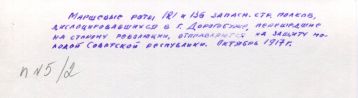 Маршевые роты 121 и 136 запасн. стр. полков,
дислоцировавшихся в г. Дорогобуже, перешедшие
на сторону революции, отправляются на защиту мо-
лодой Советской республики. Октябрь 1917 г.
п № 5/2